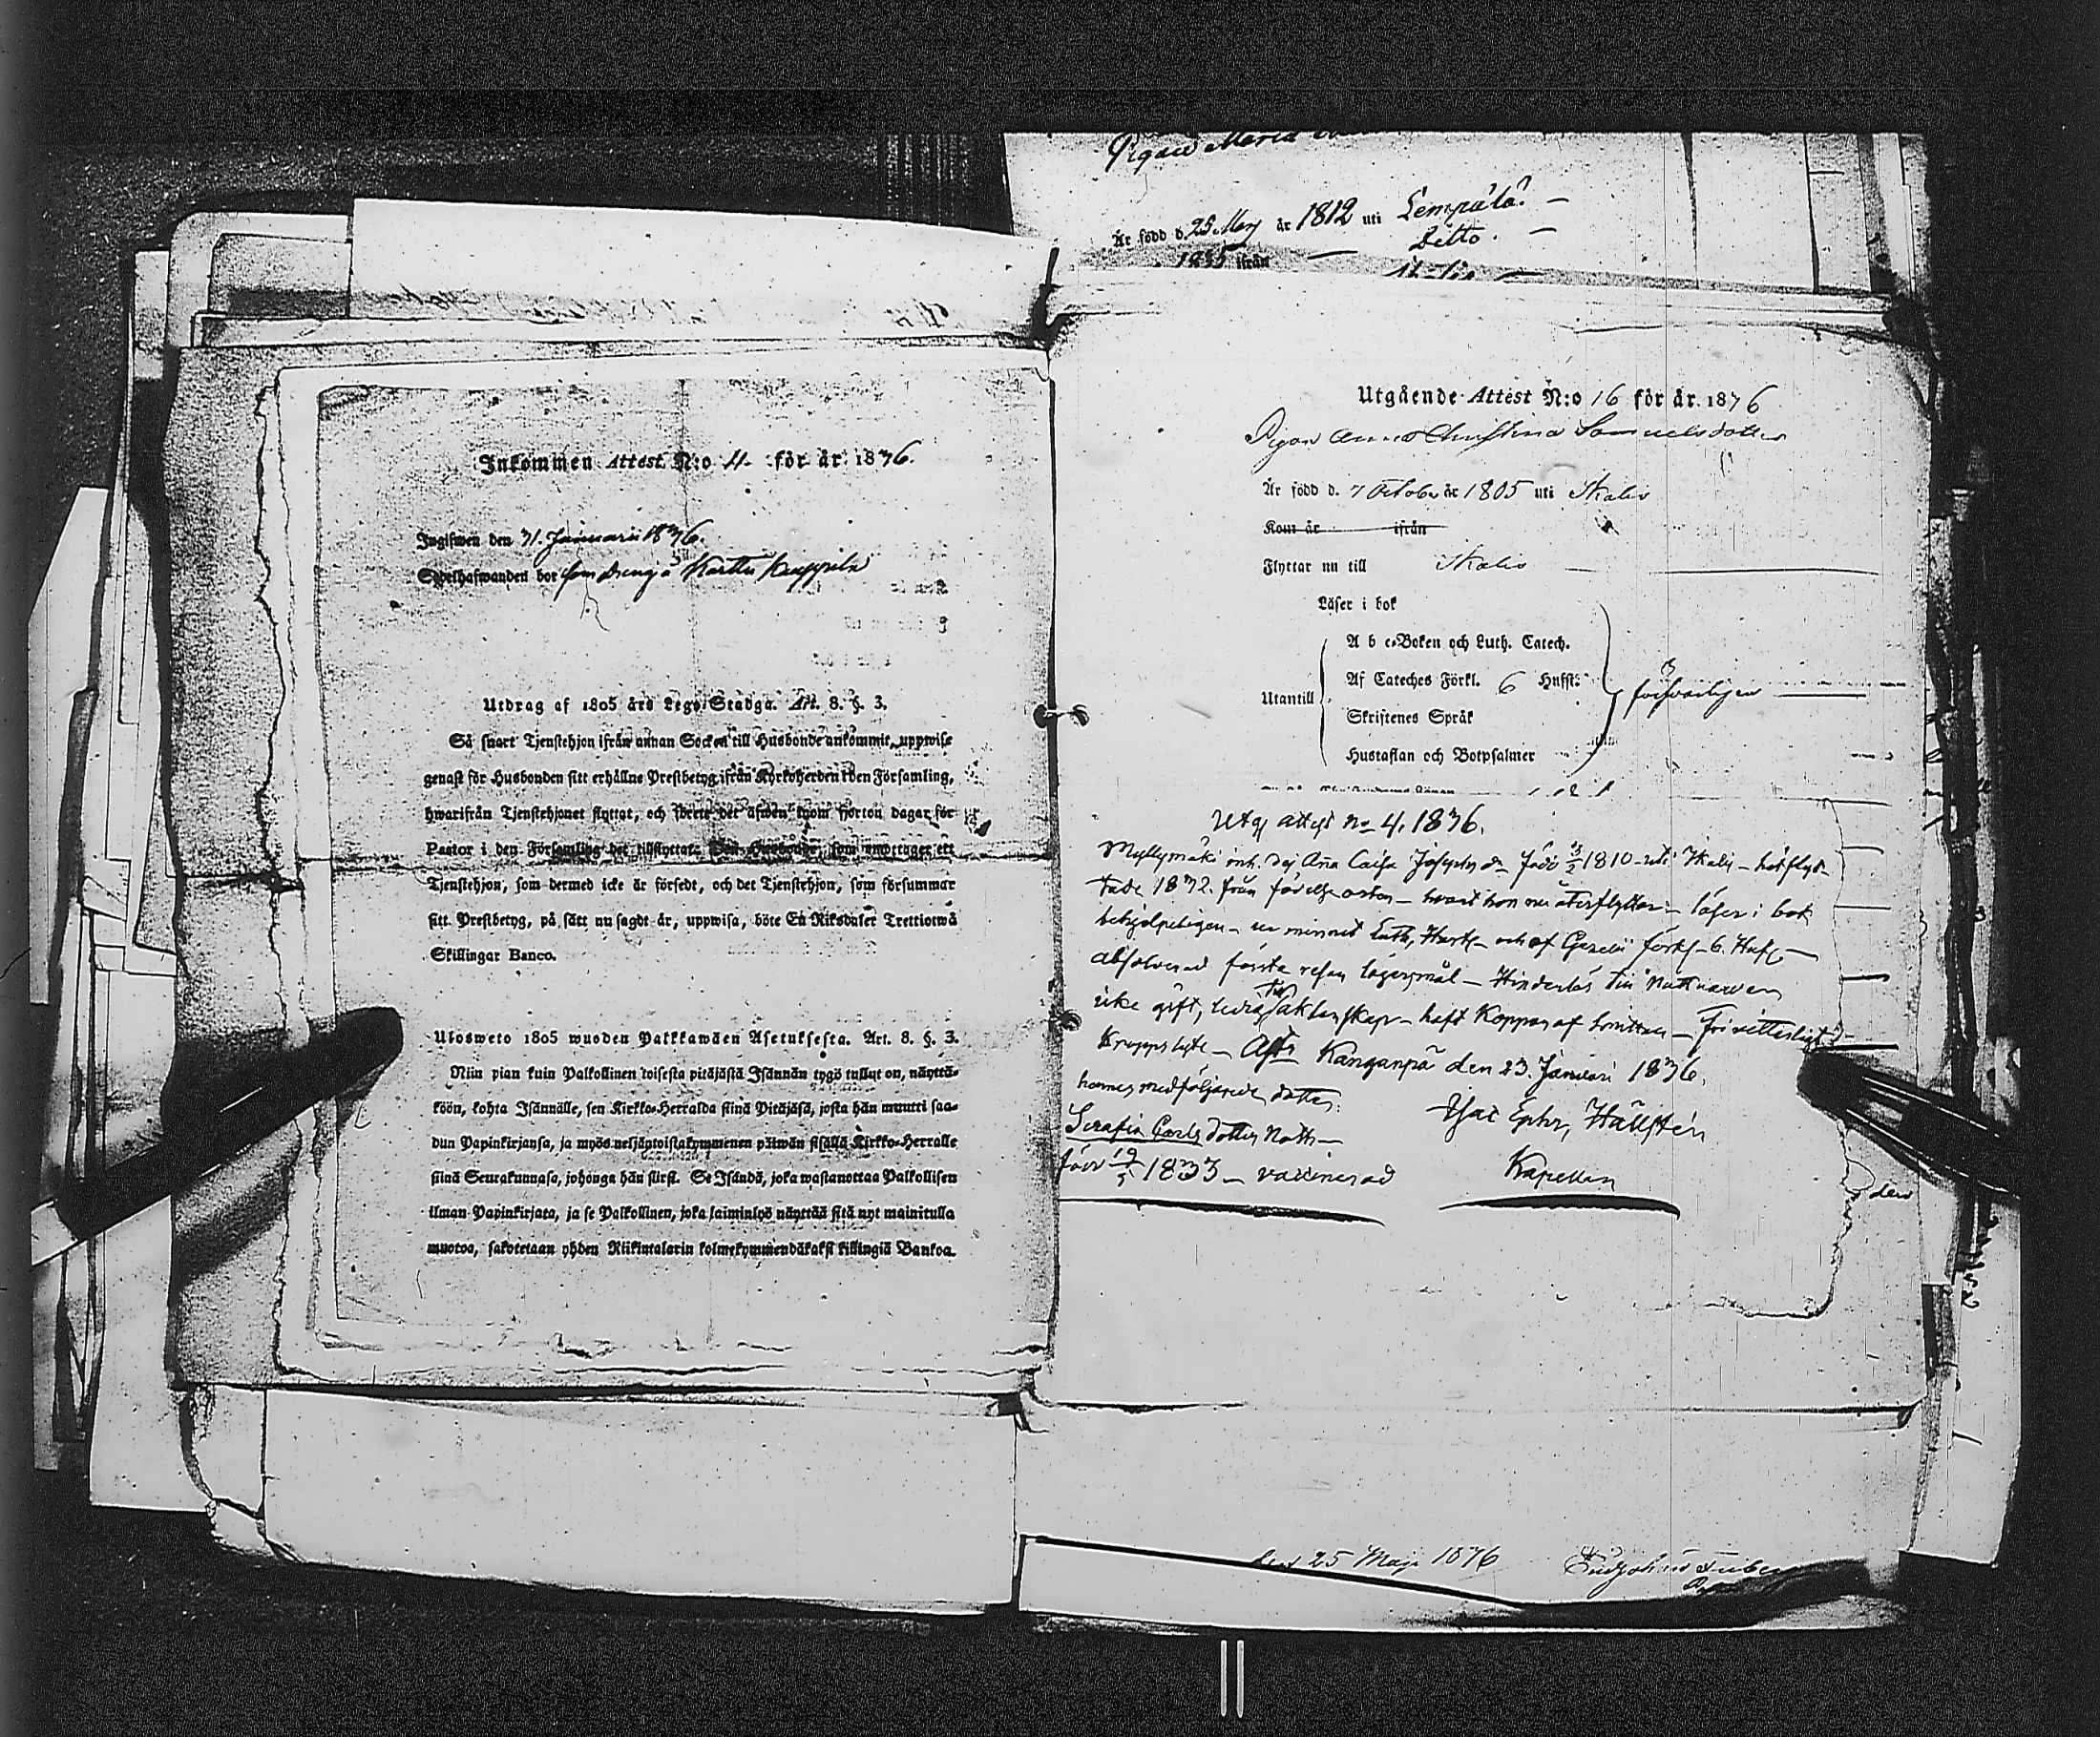 Pigan Maria
Är född d. 25 Maij år 1812 uti Lempälä. —
Ditto. —
1835 ifrån —
Inkommen Attest N:o 4. för år 1836.
Ingifwen den 31. Januarii 1836.
Sedelhafwanden bor som dreng å Karttu Knuppila
Utdrag af 1805 års Lego-Stadga. Art. 8. §. 3.
Så snart Tjenstehjon ifrån annan Socken till Husbonde ankommit, uppwise
genast för Husbonden sitt erhållne Prestbetyg ifrån Kyrkoherden i den Församling,
hwarifrån Tjenstehjonet flyttat, och förete det äfwen inom fjorton dagar för
Pastor i den Församling det tillflyttat. Den Husbonde, som emottager ett
Tjenstehjon, som dermed icke är försedt, och det Tjenstehjon, som försummar
sitt Prestbetyg, på sätt nu sagdt är, uppwisa, böte En Riksdaler Trettiotwå
Skillingar Banco.
Ulosweto 1805 wuoden Palkkawäen Asetuksesta. Art. 8. §. 3.
Niin pian kuin Palkollinen toisesta pitäjästä Isännän tygö tullut on, näyttä-
köön, kohta Isännälle, sen Kirkko-Herralda siinä Pitäjäsä, josta hän muutti saa-
dun Papinkirjansa, ja myös neljäntoistakymmenen päiwän sisällä Kirkko-Herralle
siinä Seurakunnasa, johonga hän siirsi. Se Isändä, joka wastanottaa Palkollisen
ilman Papinkirjata, ja se Palkollinen, joka laiminlyö näyttää sitä nyt mainitulla
muotoa, sakotetaan yhden Riikintalarin kolmekymmendäkaksi killingiä Bankoa.
Utgående Attest N:o 16 för år 1836
Pigan Anna Christina Samuelsdotter
Är född d. 7 October år 1805 uti Ikalis
Kom år ifrån
Flyttar nu till Ikalis —
Läser i bok
A b c-Boken och Luth. Catech.
Af Cateches Förkl. 6 Hufst.
Utantill försvarligen
Skriftenes Språk
Hustaflan och Botpsalmer
Utg attest no 4. 1836.
Myllymäki inh. Pig Aña Caisa Josephs dr född 3/2 1810 uti Ikalis — hitflyt-
tade 1832. från förelse orten — hvart hon nu återflyttar — läser i bok
behjelpeligen — ur minnet Luth, Hust — och af Gezelii förkl — 6. Huf —
absolverad första resan lägersmål — Hinderlös till Nattvarden
icke gift, ledig till äktenskap — haft Koppor af smittan — Fri
Kroppslyte — Kanganpä den 23. Januari 1836.
hennes medföljande dotter:
Serafia Carls dotter
född 19/5 1833 — vaccinerad
Isac Ephr, Hällsten
Kapellan
den
den 25 Maji 1836